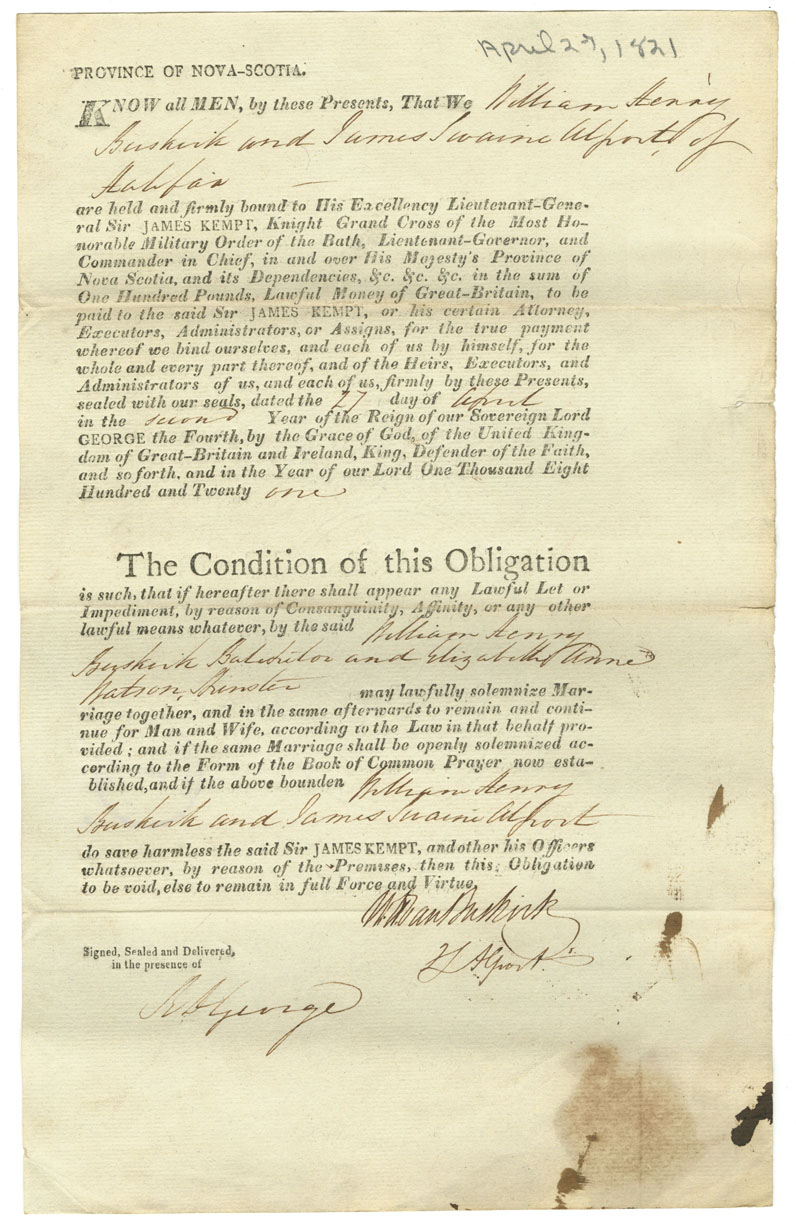 April 27, 1821
PROVINCE OF NOVA-SCOTIA.
KNOW all MEN, by these Presents, That We William Henry
Buskirk and James Swaine Alport, of
Halifax —
are held and firmly bound to His Excellency Lieutenant-Gene-
ral Sir JAMES KEMPT, Knight Grand Cross of the Most Ho-
norable Military Order of the Bath, Lieutenant-Governor, and
Commander in Chief, in and over His Majesty's Province of
Nova Scotia, and its Dependencies, &c. &c. &c. in the sum of
One Hundred Pounds, Lawful Money of Great-Britain, to be
paid to the said Sir JAMES KEMPT, or his certain Attorney,
Executors, Administrators, or Assigns, for the true payment
whereof we bind ourselves, and each of us by himself, for the
whole and every part thereof, and of the Heirs, Executors, and
Administrators of us, and each of us, firmly by these Presents,
sealed with our seals, dated the 27 day of April
in the second Year of the Reign of our Sovereign Lord
GEORGE the Fourth, by the Grace of God, of the United King-
dom of Great-Britain and Ireland, King, Defender of the Faith,
and so forth, and in the Year of our Lord One Thousand Eight
Hundred and Twenty one
The Condition of this Obligation
is such, that if hereafter there shall appear any Lawful Let or
Impediment, by reason of Consanguinity, Affinity, or any other
lawful means whatever, by the said William Henry
Buskirk Batchelor and Elizabeth Anne
Watson, Spinster may lawfully solemnize Mar-
riage together, and in the same afterwards to remain and conti-
nue for Man and Wife, according to the Law in that behalf pro-
vided; and if the same Marriage shall be openly solemnized ac-
cording to the Form of the Book of Common Prayer now esta-
blished, and if the above bounden William Henry
Buskirk and James Swaine Alport
do save harmless the said Sir JAMES KEMPT, and other his Officers
whatsoever, by reason of the Premises, then this Obligation
to be void, else to remain in full Force and Virtue.
W VanBuskirk
Signed, Sealed and Delivered,
in the presence of
Alport
George